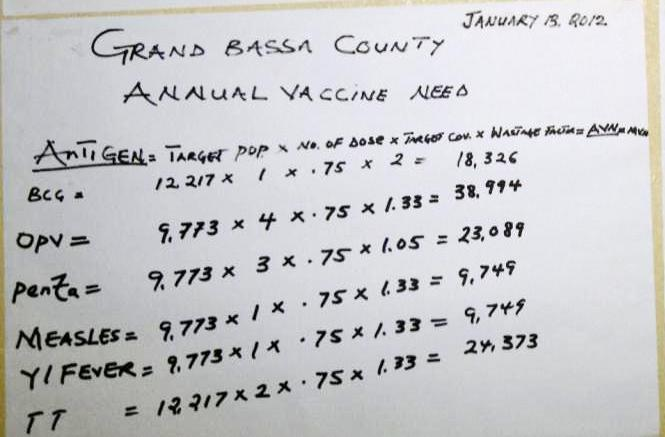 JANUARY 13, 2012
GRAND BASSA COUNTY
ANNUAL VACCINE NEED
ANTIGEN = TARGET POP x NO. OF DOSE x TARGET COV. x WASTAGE FACTOR = AVN =
BCG = 12,217 x 1 x .75 x 2 = 18,326
OPV = 9,773 x 4 x .75 x 1.33 = 38,994
Penta = 9,773 x 3 x .75 x 1.05 = 23,089
MEASLES = 9,773 x 1 x .75 x 1.33 = 9,749
Y/FEVER = 9,773 x 1 x .75 x 1.33 = 9,749
TT = 12,217 x 2 x .75 x 1.33 = 24,373